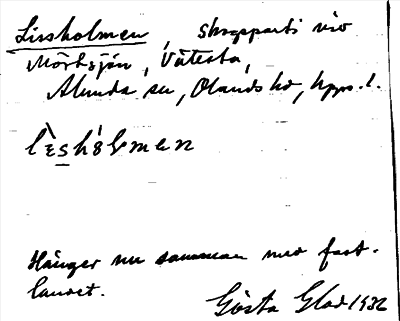 Lissholmen, skogsparti vid
Mörtsjön, Vätesta,
Alunda sn, Olands hd, Upps. l.
lὲshòlmen
Hänger nu samman med fast-
landet.
Gösta Glad 1932